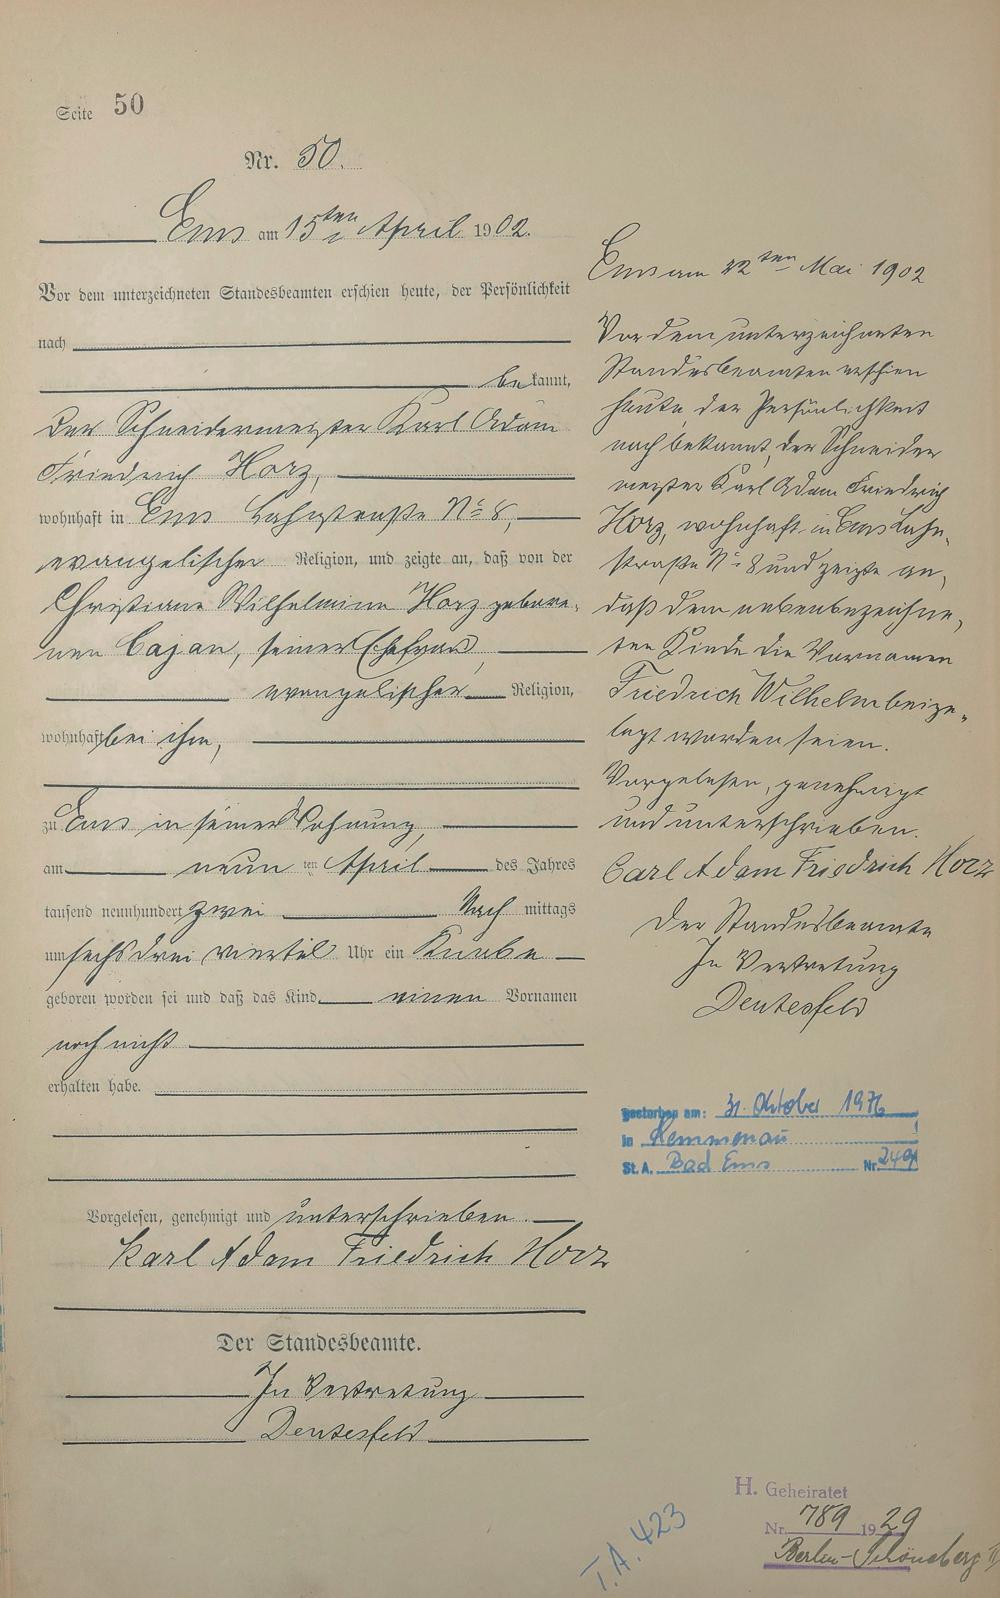 Seite 50
Nr. 50.
Ems am 15ten April 1902.
Vor dem unterzeichneten Standesbeamten erschien heute, der Persönlichkeit
nach
bekannt,
der Schneidermeister Karl Adam
Friedrich Horz,
wohnhaft in Ems Lahnstraße No 8,
evangelischer Religion, und zeigte an, daß von der
Christiane Wilhelmine Horz gebore-
nen Cajan, seiner Ehefrau,
evangelischer Religion,
wohnhaft bei ihm,
zu Ems in seiner Wohnung,
am neun ten April des Jahres
tausend neunhundert zwei Nach mittags
um sechs drei viertel Uhr ein Knabe
geboren worden sei und daß das Kind einen Vornamen
noch nicht
erhalten habe.
Vorgelesen, genehmigt und unterschrieben.
Karl Adam Friedrich Horz
Der Standesbeamte.
In Vertretung
Ems am 22ten Mai 1902
Vor dem unterzeichneten
Standesbeamten erschien
heute, der Persönlichkeit
nach bekannt, der Schneider
meister Karl Adam Friedrich
Horz, wohnhaft in Ems Lahn-
straße No 8 und zeigte an,
daß dem nebenbezeichne-
ten Kinde die Vornamen
Friedrich Wilhelm beige-
legt worden seien.
Vorgelesen, genehmigt
und unterschrieben.
Carl Adam Friedrich Horz
Der Standesbeamte
In Vertretung
gestorben am: 31. Oktober 1976
in Kemmenau
St.A. Bad Ems Nr.
T.A. 423
H. Geheiratet
Nr. 789 1929
Berlin-Schöneberg